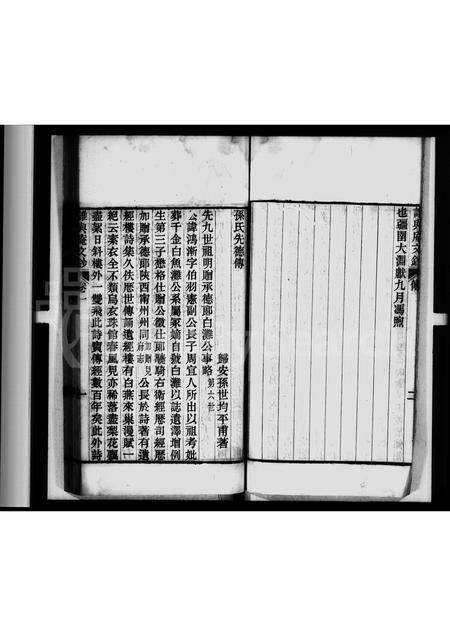 也彊圉大淵獻九月馮煦
二
孫氏先德傳
歸安孫世均平甫著
先九世祖明贈承德郎白灘公事略第六世
公諱鴻漸字伯羽憲副公長子周宜人所出以祖考妣
葬千金白魚灘公系屬冢嫡自號白灘以誌遺澤增例
生第三子懋格仕贈公徵仕郎驍騎右衛經歷司經歷
加贈承德郎陝西甯州州同加贈見府志公長於詩著有遺
經樓詩集久佚歷世傳誦遺經樓有白燕來巢漫賦一
絕云素衣全不類烏衣珠館春風見亦稀落盡梨花飄
盡絮日斜樓外一雙飛此詩實傳經數百年矣此外詩
卷一
一